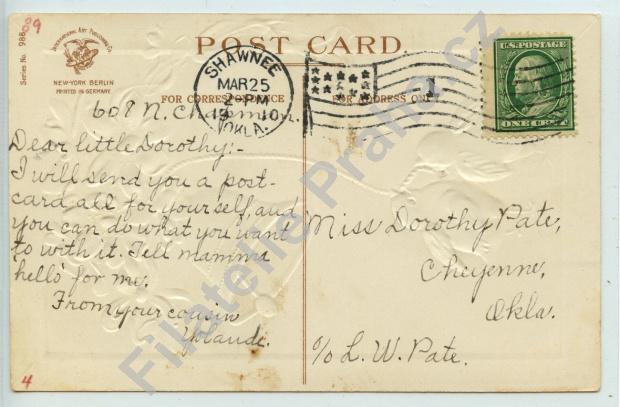 Series No. 988
89
INTERNATIONAL ART PUBLISHING Co.
NEW-YORK BERLIN
PRINTED IN GERMANY
POST CARD
FOR CORRESPONDENCE
FOR ADDRESS ONLY
SHAWNEE
MAR 25
2-PM
1910
OKLA.
1
U.S. POSTAGE
ONE CENT
608 N. Chapman.
Dear little Dorothy:-
I will send you a post-
card all for yourself, and
you can do what you want
to with it. Tell mamma
hello for me.
From your cousin
Yolande.
Miss Dorothy Pate,
Cheyenne,
Okla.
c/o L. W. Pate.
4
Filatelie Praha.cz